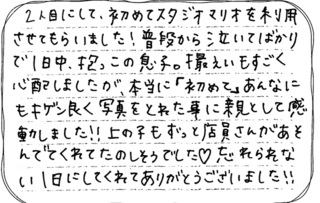 2人目にして、初めてスタジオマリオを利用
させてもらいました！普段から泣いてばかり
で1日中、抱っこの息子。撮えいもすごく
心配しましたが、本当に「初めて」あんなに
もキゲン良く写真をとれた事に親として感
動しました!!上の子もずっと店員さんがあそ
んでてくれてたのしそうでした♡忘れられな
い1日にしてくれてありがとうございました!!